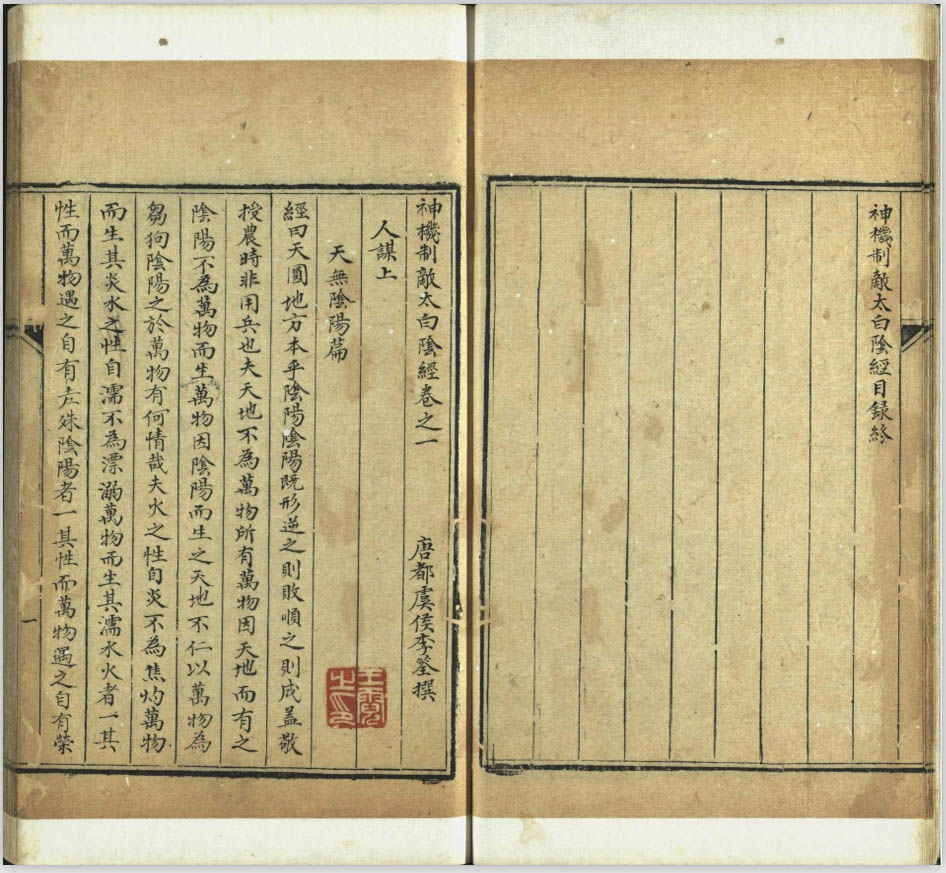 神機制敵太白陰經目録終
神機制敵太白陰經卷之一　唐都虞侯李筌撰
人謀上
天無陰陽篇
經曰天圓地方本乎陰陽陰陽既形逆之則敗順之則成盖敬
授農時非用兵也夫天地不為萬物所有萬物因天地而有之
陰陽不為萬物而生萬物因陰陽而生之天地不仁以萬物為
芻狗陰陽之於萬物有何情哉夫火之性自炎不為焦灼萬物
而生其炎水之性自濡不為漂溺萬物而生其濡水火者一其
性而萬物遇之自有差殊陰陽者一其性而萬物遇之自有榮
一